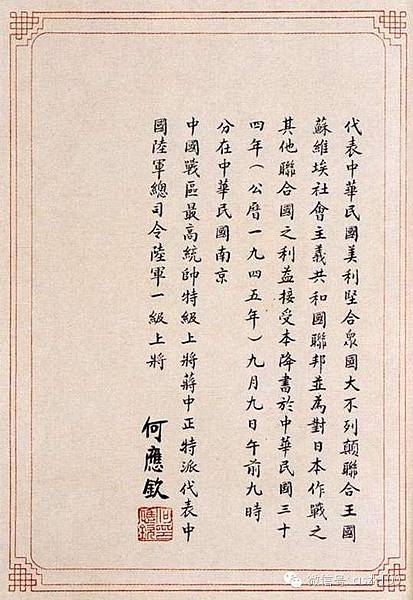 代表中華民國美利堅合衆國大不列顛聯合王國
蘇維埃社會主義共和國聯邦並為對日本作戰之
其他聯合國之利益接受本降書於中華民國三十
四年（公曆一九四五年）九月九日午前九時
分在中華民國南京
中國戰區最高統帥特級上將蔣中正特派代表中
國陸軍總司令陸軍一級上將
何應欽
微信号: